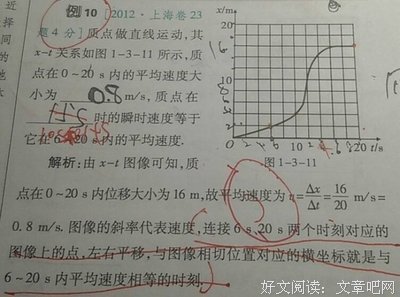 例10 [2012·上海卷23
题4分] 质点做直线运动，其
x-t 关系如图1-3-11 所示，质
点在0~20 s 内的平均速度大
小为 0.8 m/s，质点在
时的瞬时速度等于
它在6~20 s 内的平均速度.
x/m
20
16
12
8
4
0 2 4 6 8 10 12 20 t/s
图1-3-11
解析：由x-t图像可知，质
点在0~20 s内位移大小为16 m，故平均速度为v=Δx/Δt=16/20 m/s=
0.8 m/s. 图像的斜率代表速度，连接6 s、20 s 两个时刻对应的
图像上的点，左右平移，与图像相切位置对应的横坐标就是与
6~20 s 内平均速度相等的时刻.
好文阅读：文章吧网